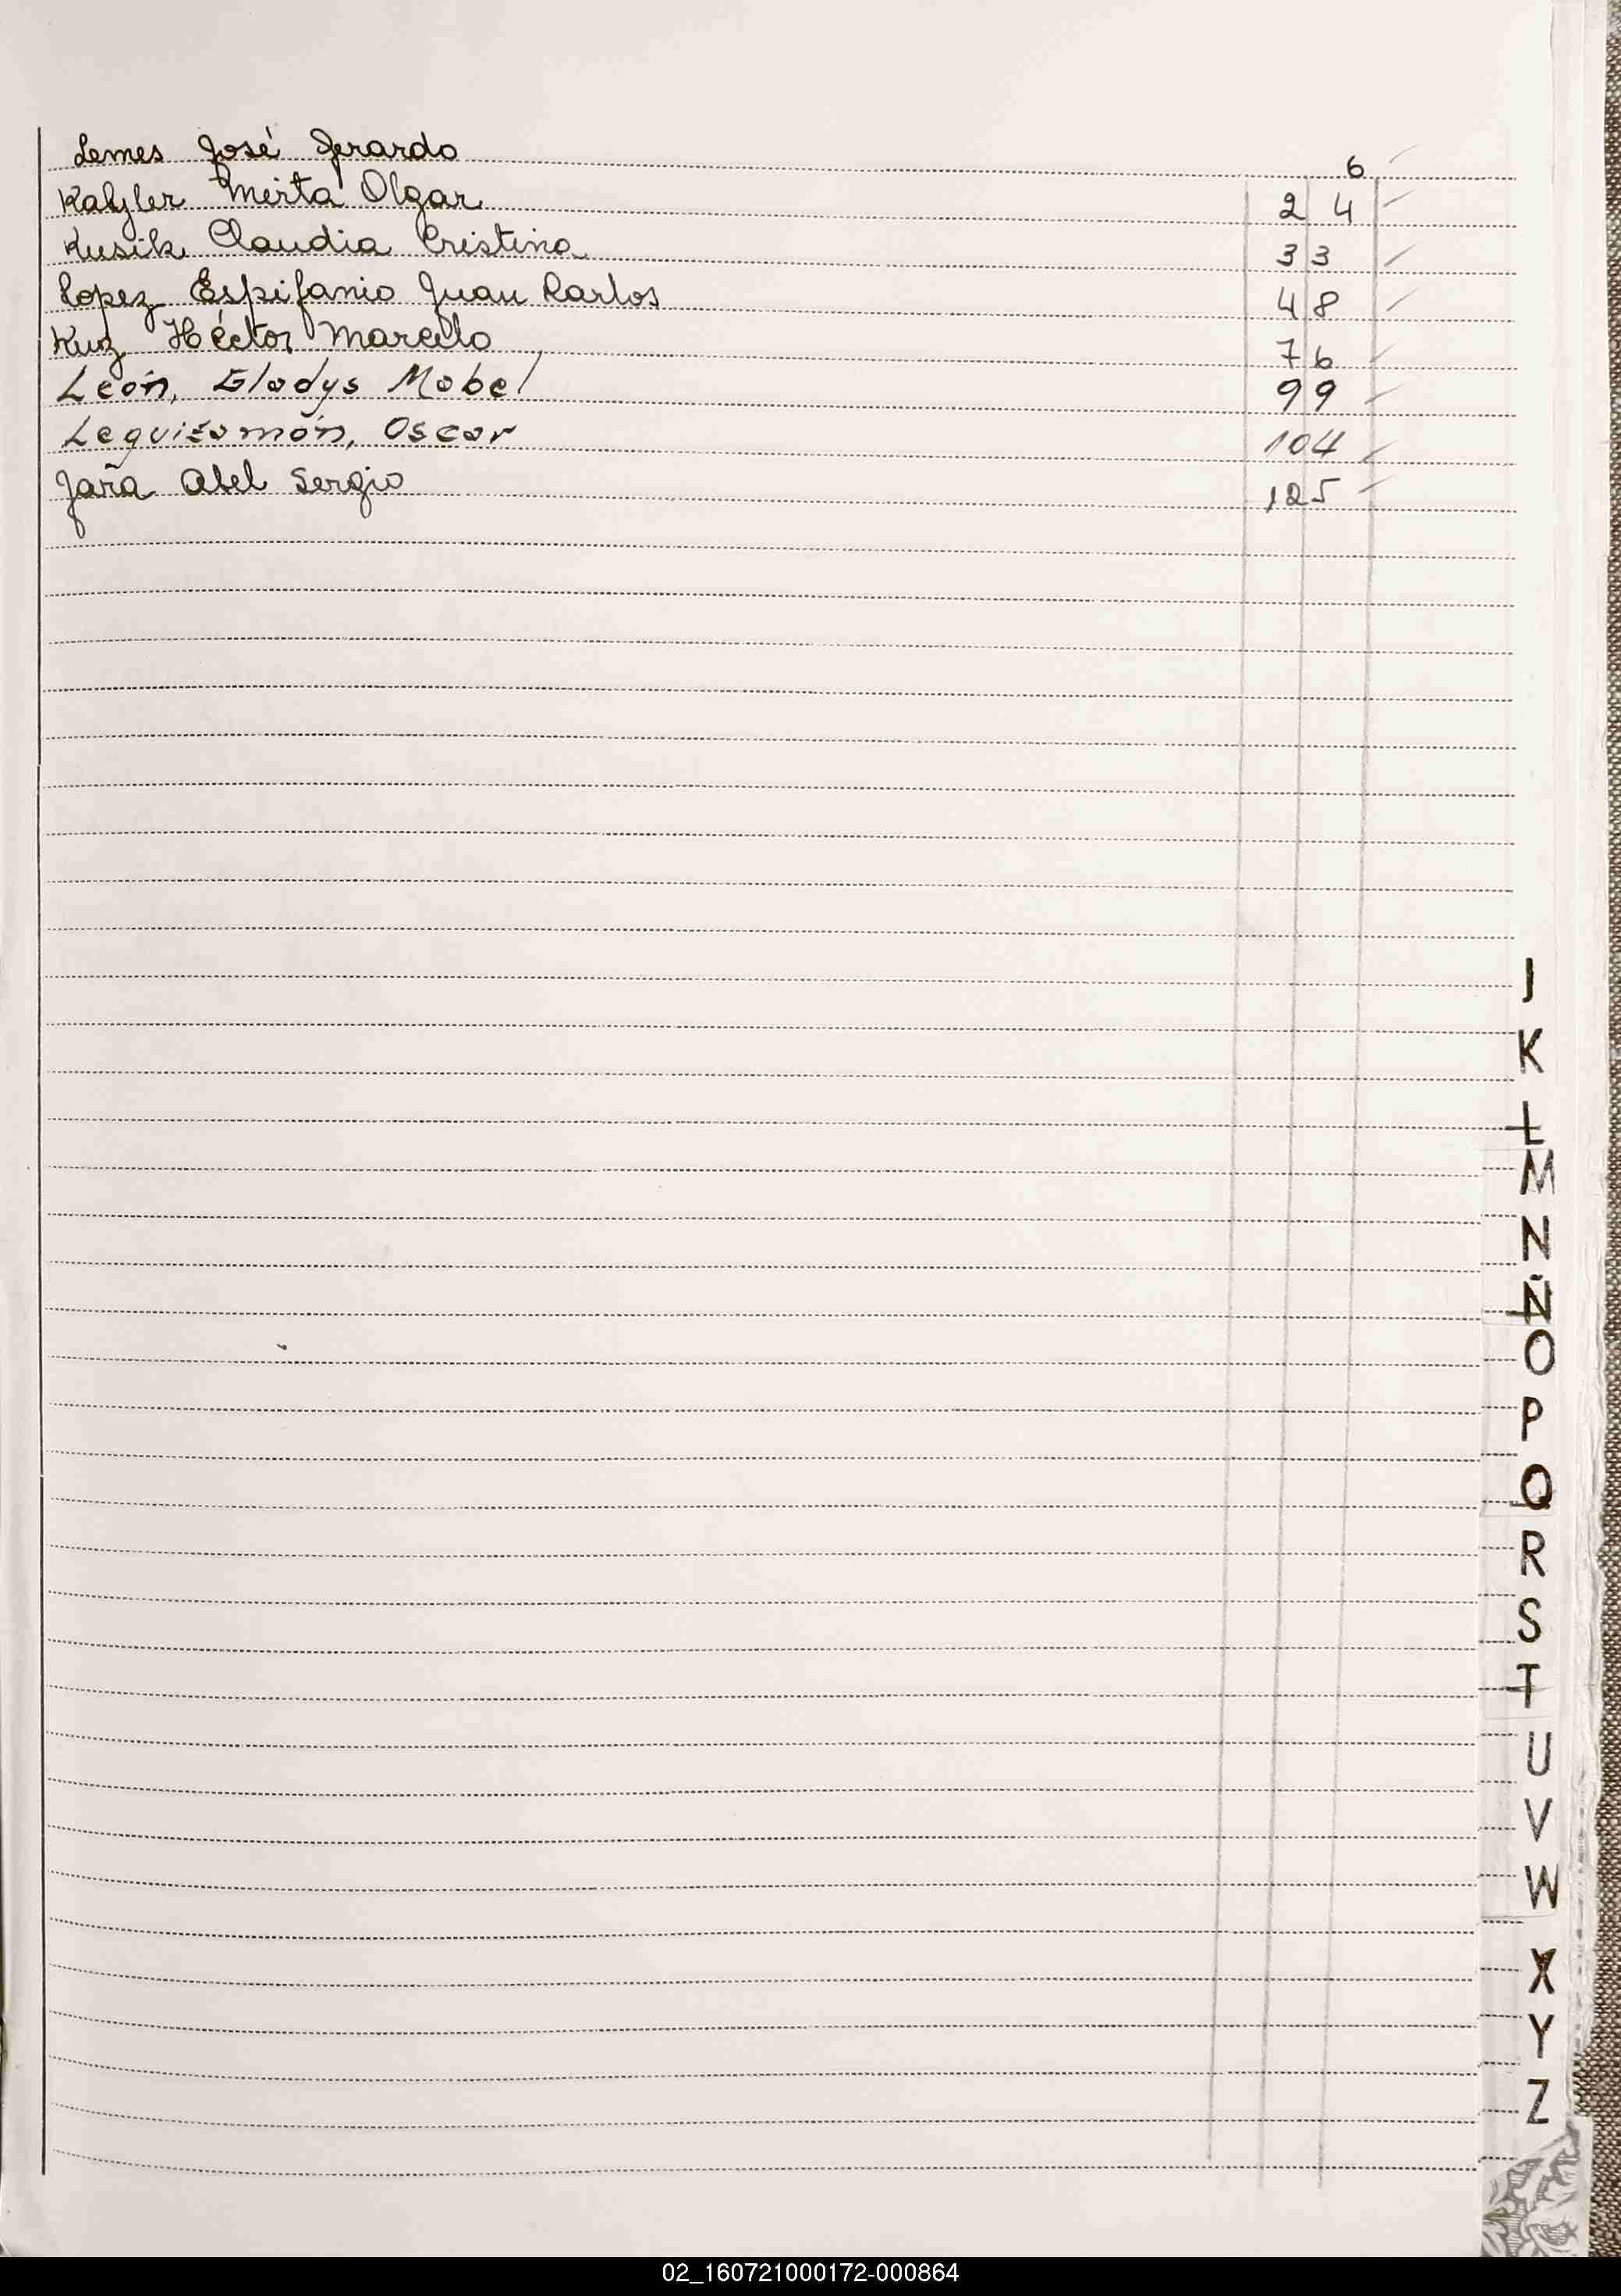 Lemes José Gerardo 6
Katzler Mirta Olgar 24
Kusik Claudia Cristina 33
Lopez Espifanio Juan Carlos 48
Kuz Héctor Marcelo 76
León, Gladys Mabel 99
Leguizamón, Oscar 104
Jara Abel Sergio 125
J
K
L
M
N
Ñ
O
P
Q
R
S
T
U
V
W
X
Y
Z
02_160721000172-000864